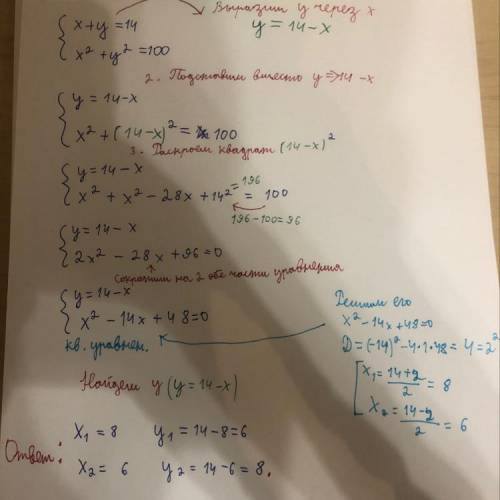 Выразим y через x
{ x+y=14
y = 14-x
x² + y² = 100
2. Подставим вместо y => 14-x
{ y = 14-x
x² + (14-x)² = 100
3. Раскроем квадрат (14-x)²
{ y = 14-x
=196
x² + x² - 28x + 14² = 100
196-100=96
{ y = 14-x
2x² - 28x + 96 = 0
Сократим на 2 обе части уравнения
{ y = 14-x
x² - 14x + 48 = 0
кв. уравнен.
Решим его
x² - 14x + 48 = 0
D = (-14)² - 4·1·48 = 4 = 2²
[ x₁ = 14+2/2 = 8
x₂ = 14-2/2 = 6
Найдем y (y = 14-x)
Ответ:
x₁ = 8 y₁ = 14-8=6
x₂ = 6 y₂ = 14-6 = 8.